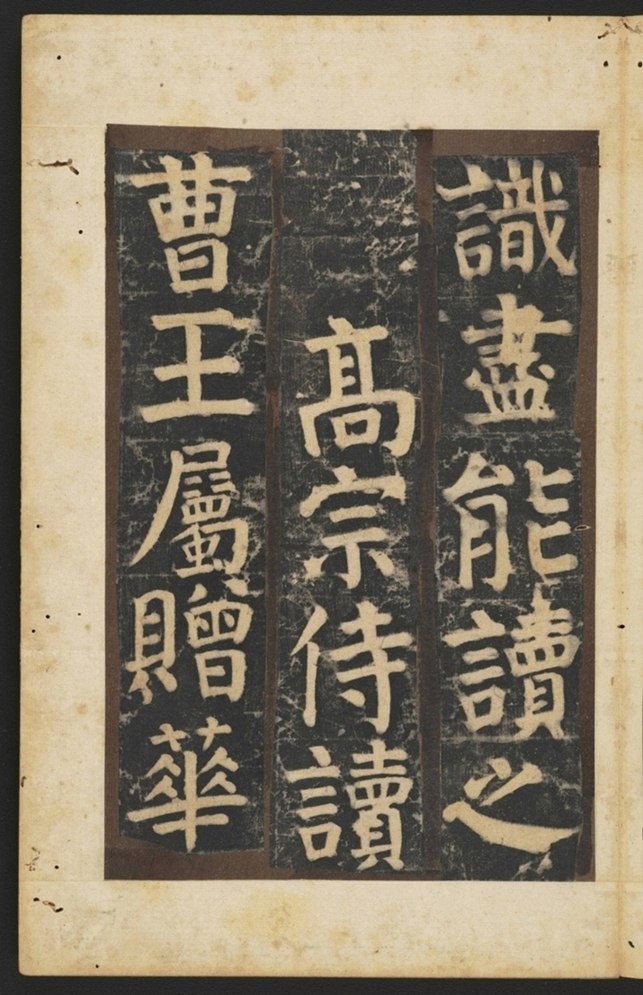 識盡能讀之
髙宗侍讀
曹王屬贈華